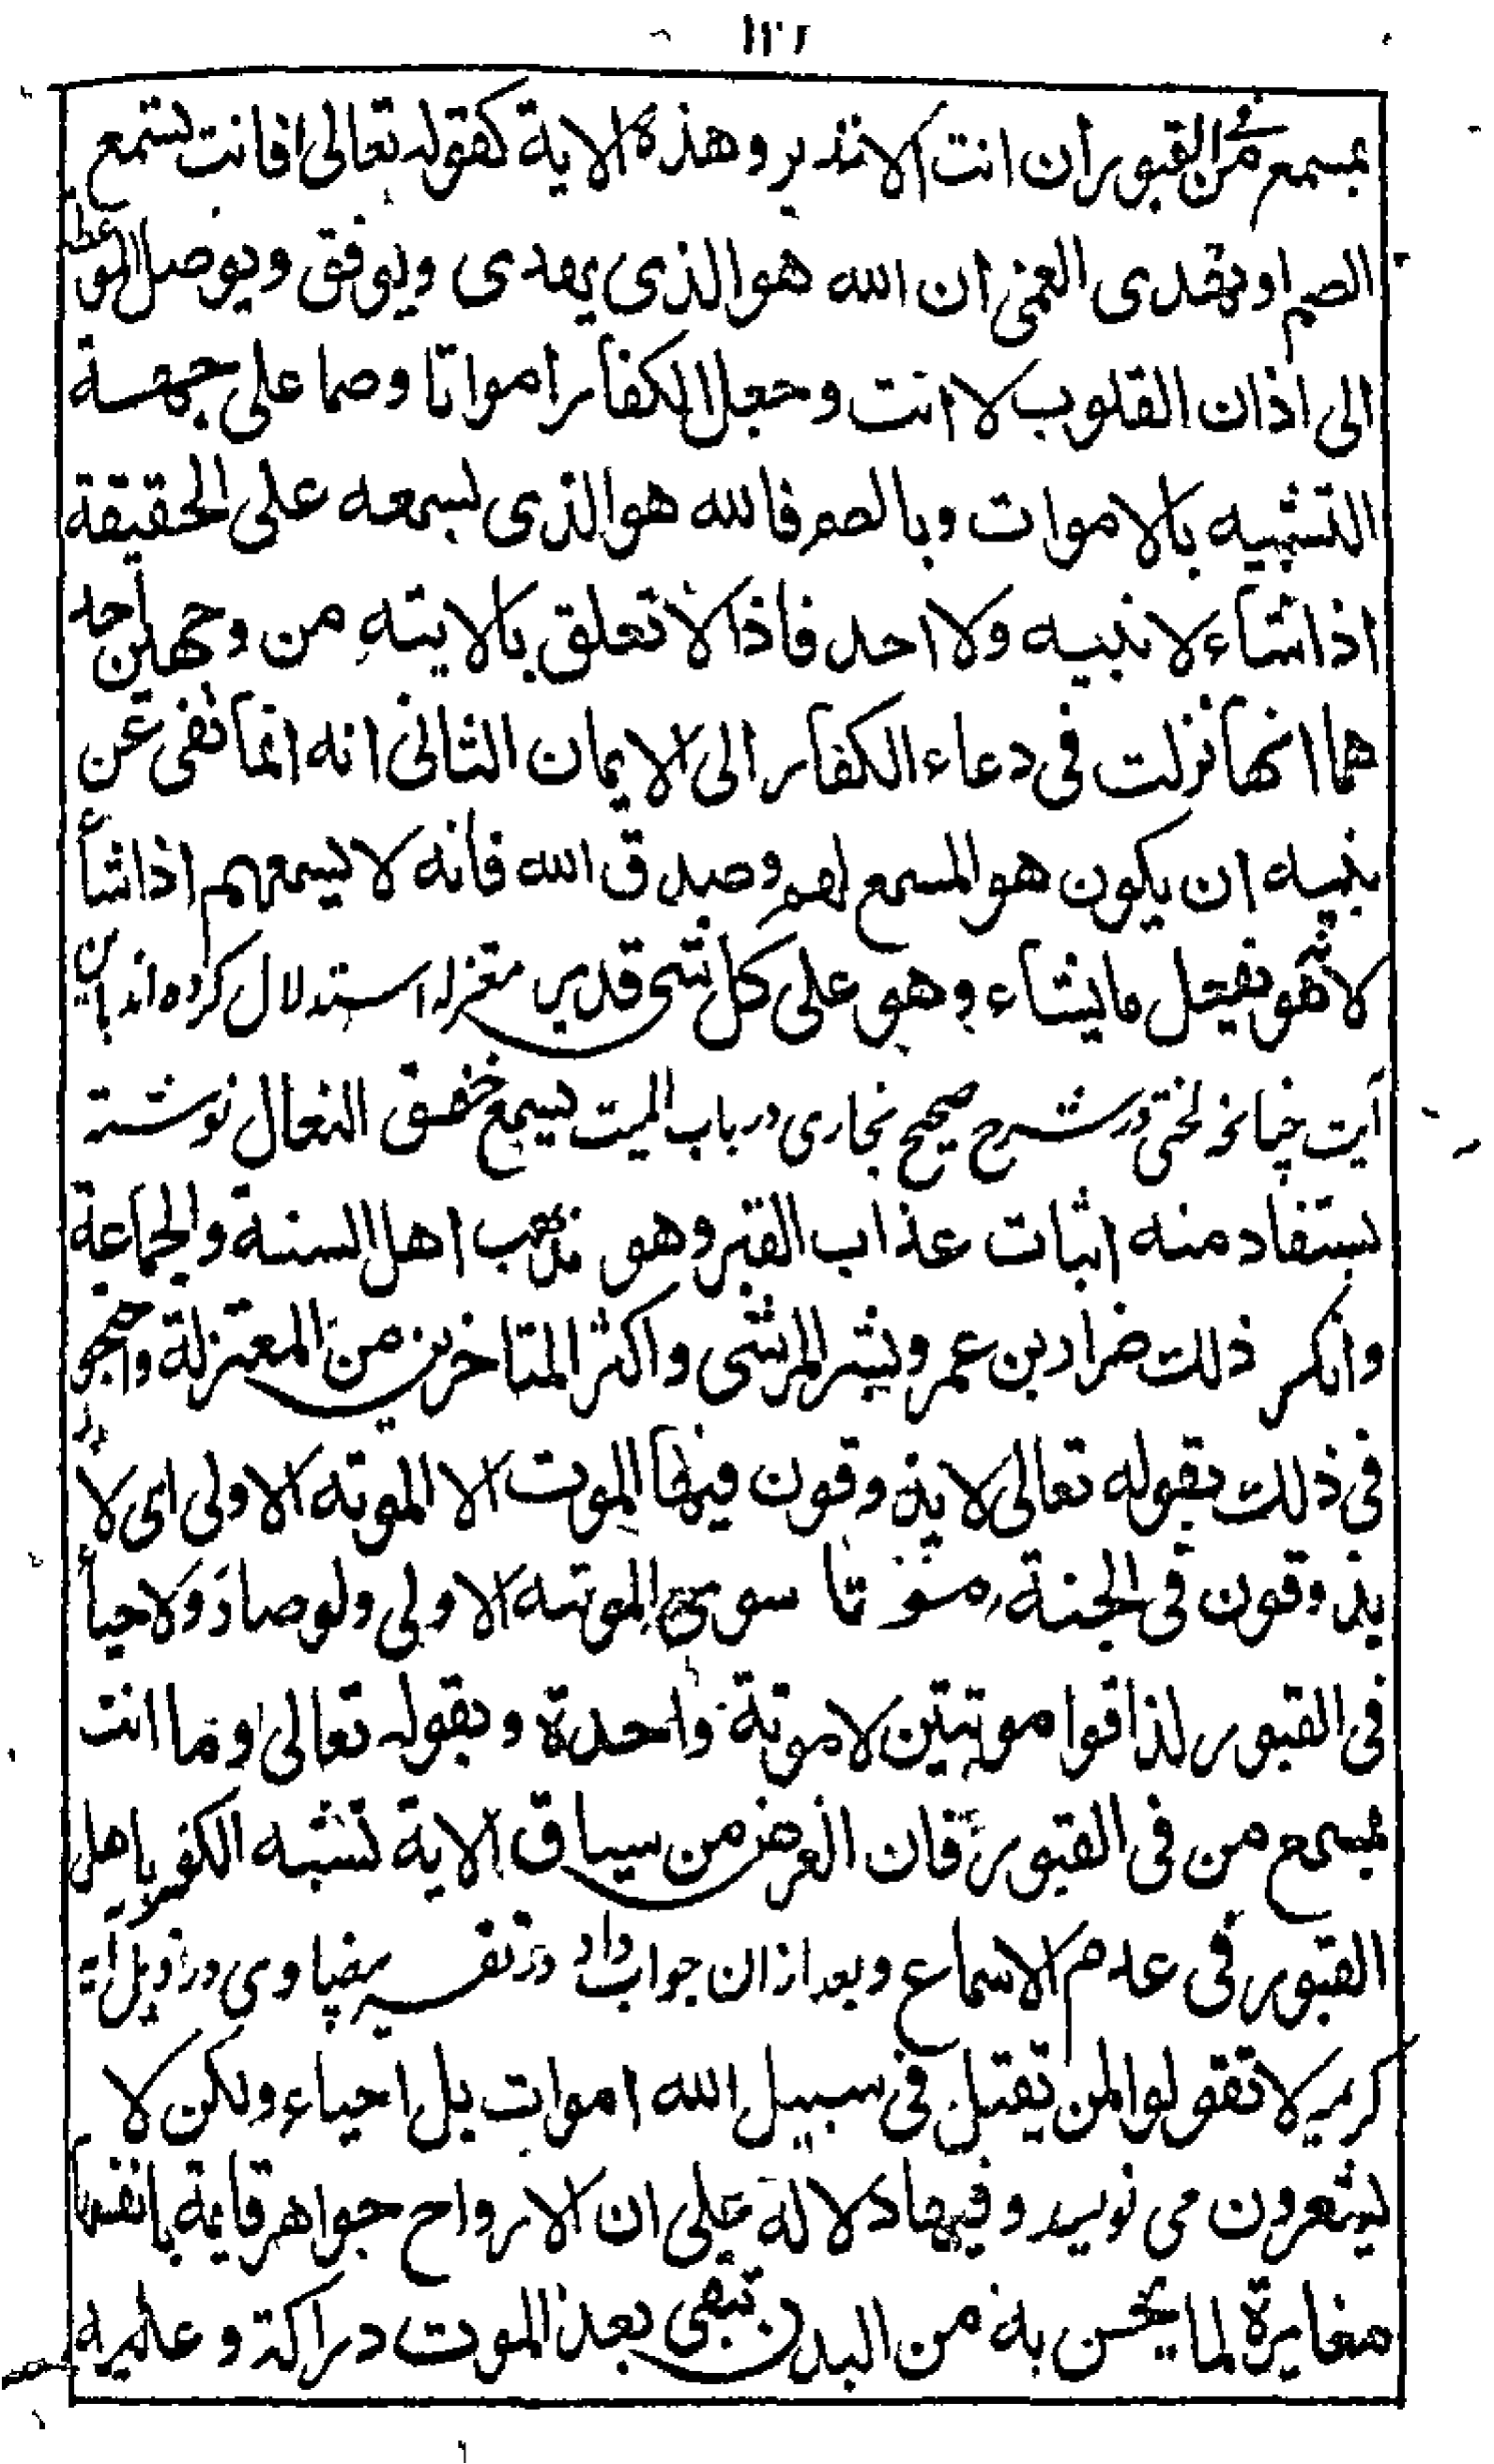 بمسمع من فی القبور ان انت الا نذیر وهذه الایة کقوله تعالی افانت تسمع
الصم او تهدی العمی ان الله هو الذی یهدی ویوفق ویوصل الموعظة
الی اذان القلوب لا انت وجعل الکفار امواتا وصما علی جهة
التشبیه بالاموات وبالصم فالله هو الذی یسمعه علی الحقیقة
اذا شاء لا نبیه ولا احد فاذا لا تعلق بالایته من وجهین احد
هما انها نزلت فی دعاء الکفار الی الایمان الثانی انه انما نفی عن
نبیه ان یکون هو المسمع لهم وصدق الله فانه لا یسمعهم اذا شاء
لا هو یفعل ما یشاء وهو علی کل شی قدیر معتزله استدلال کرده اند باین
آیت چنانچه در شرح صحیح بخاری در باب المیت یسمع خفق النعال نوشته
یستفاد منه اثبات عذاب القبر وهو مذهب اهل السنة والجماعة
وانکر ذلک ضرار بن عمر وبشر المرشی واکثر المتاخرین من المعتزلة واحتجوا
فی ذلک بقوله تعالی لا یذوقون فیها الموت الا الموتة الاولی ای لا
یذوقون فی الجنة موتا سوی الموتة الاولی ولو صاروا احیاء
فی القبور لذاقوا موتتین لا موتة واحدة وبقوله تعالی وما انت
بمسمع من فی القبور فان الغرض من سیاق الایة تشبه الکفر باهل
القبور فی عدم الاسماع وبعد ازان جواب داد در تفسیر بیضاوی در ذیل آیه
کریمه لا تقولوا لمن یقتل فی سبیل الله اموات بل احیاء ولکن لا
یشعرون می نویسد وفیها دلالة علی ان الارواح جواهر قایمة بانفسها
مغایرة لما یحس به من البدن تبقی بعد الموت دراکة وعلیه